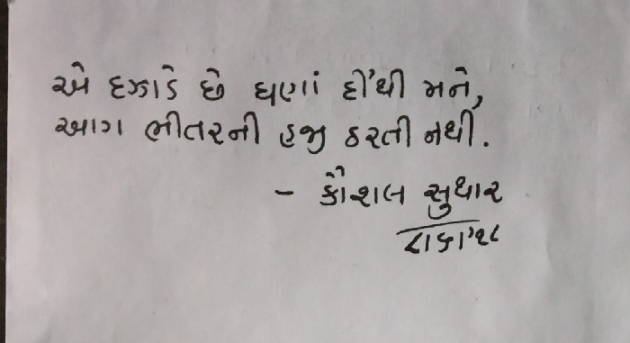 એ દઝાડે છે ઘણાં દી'થી મને,
આગ ભીતરની હજી ઠરતી નથી.
- કૌશલ સુથાર
૮/૬/'૧૮